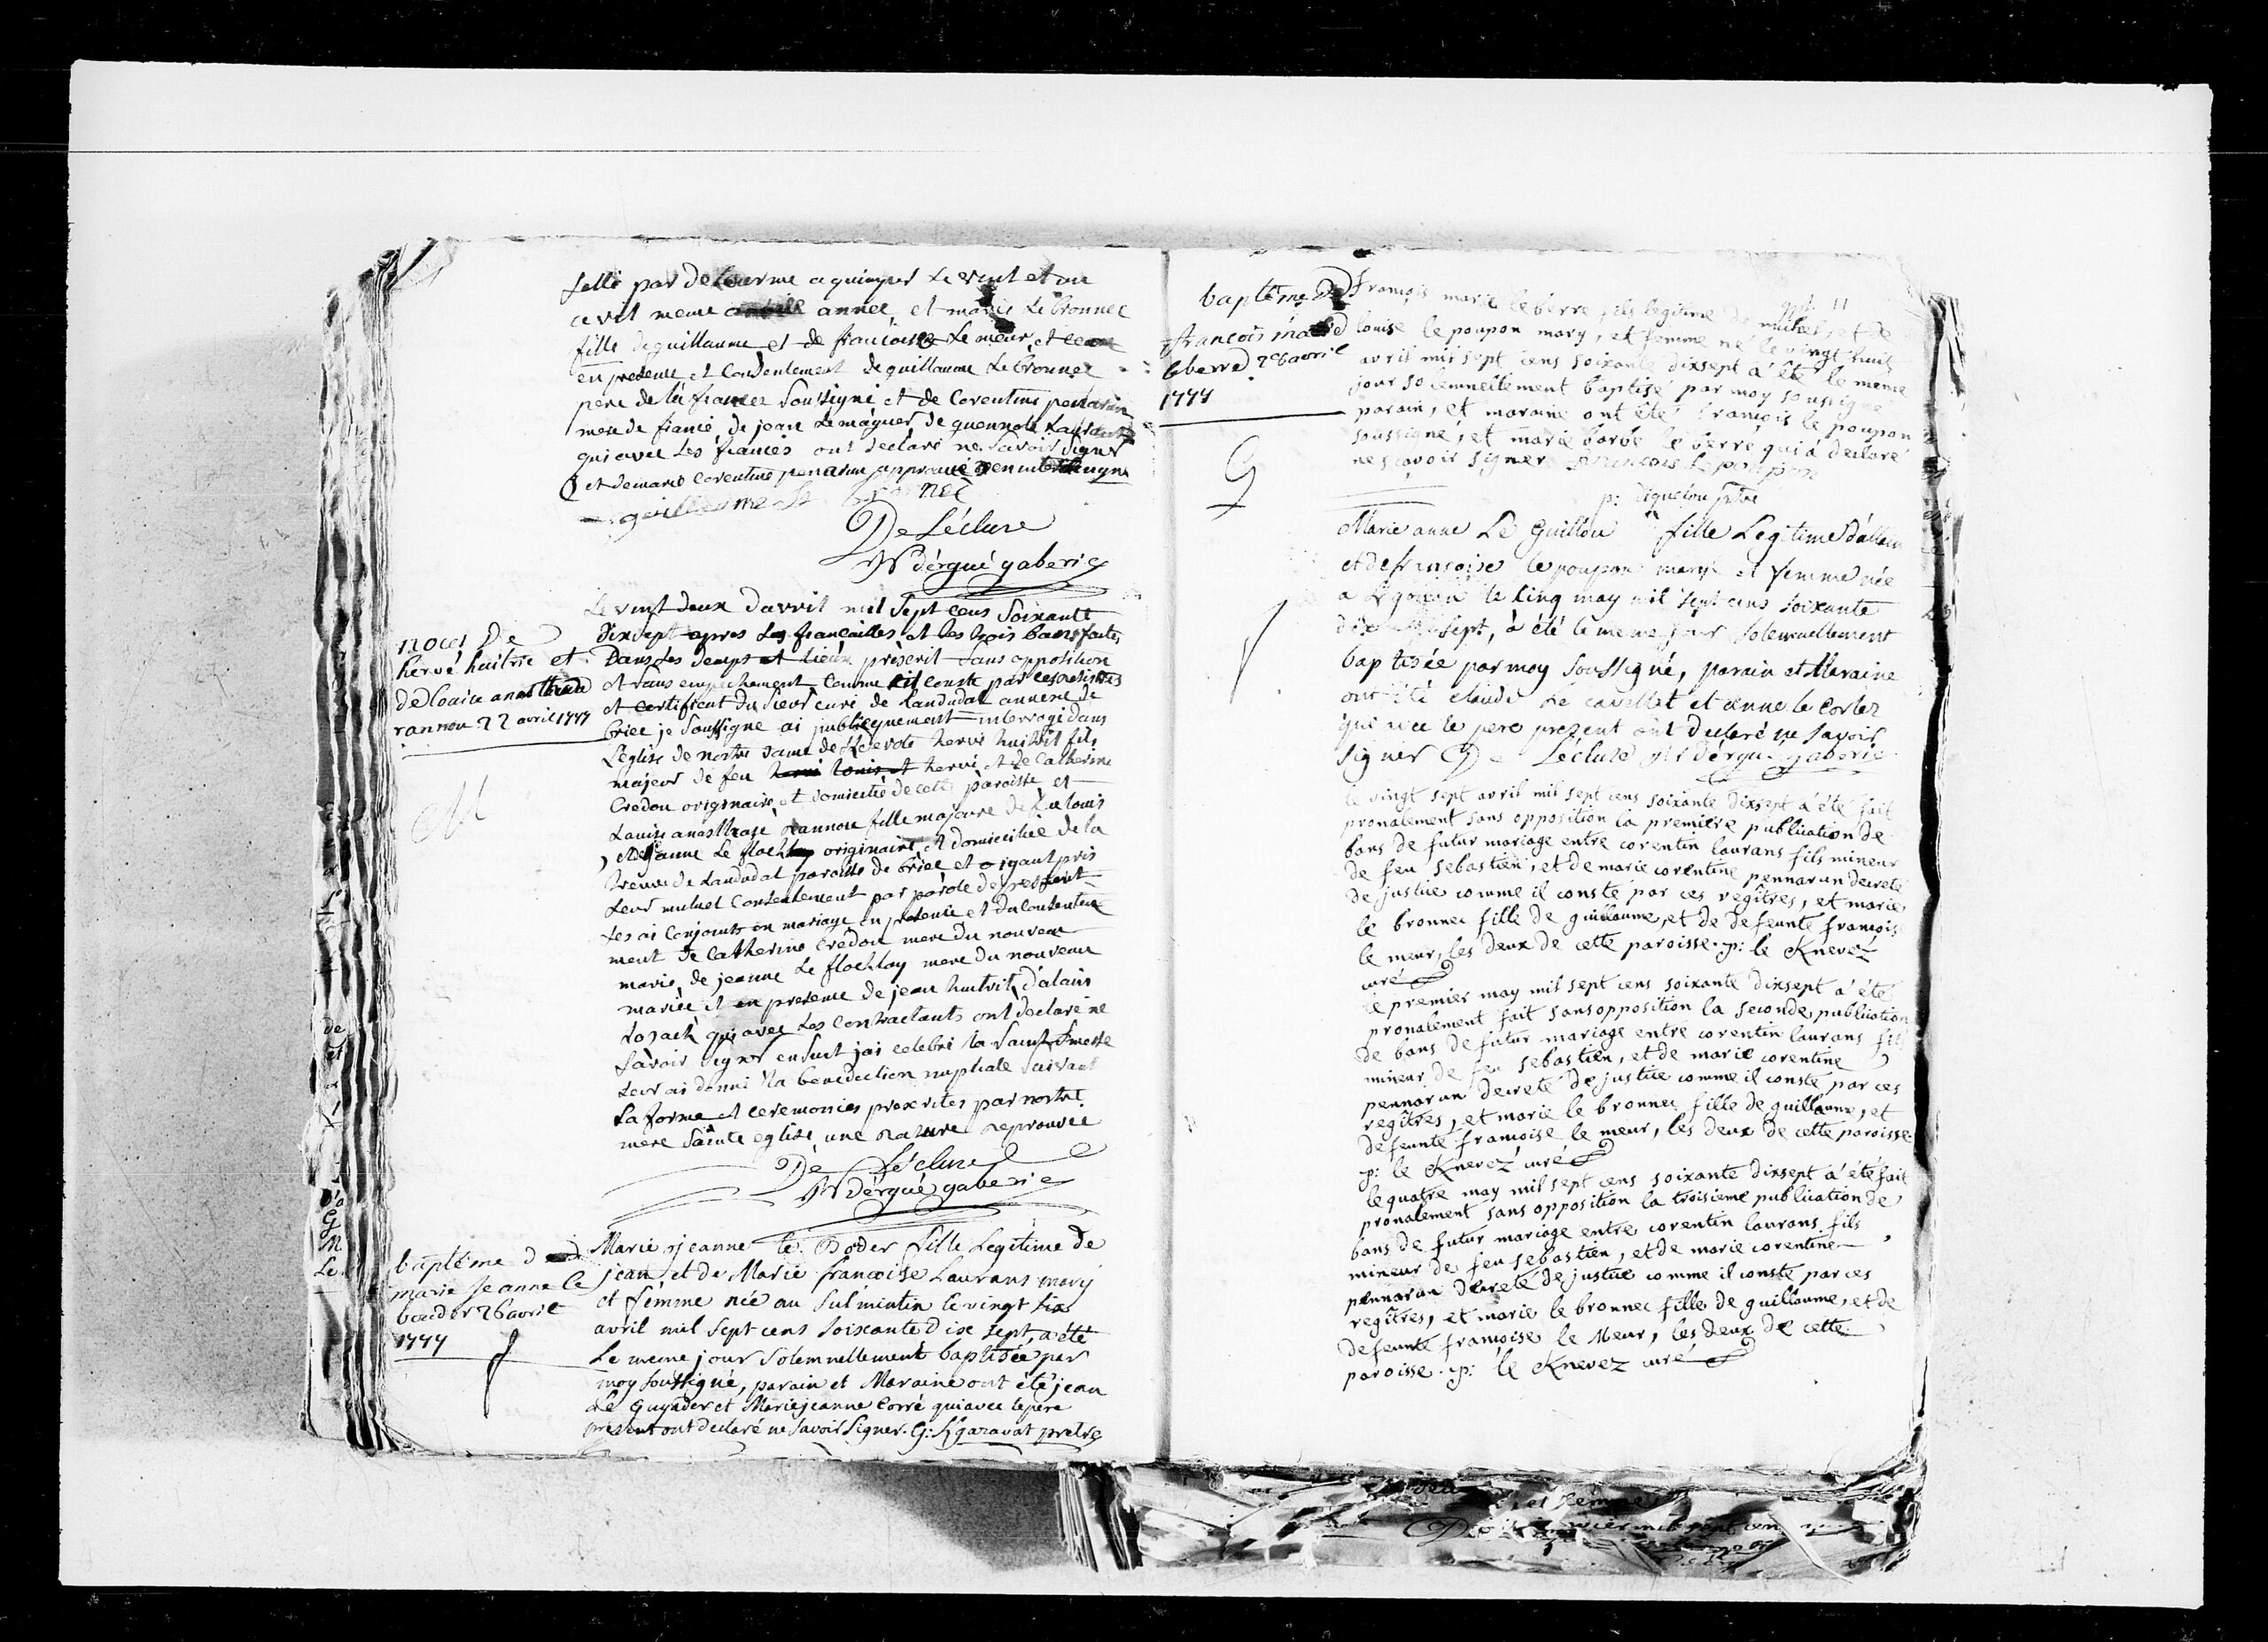 fille par de a quimper le vint et un
avril meme année et marie Le bronnec
fille de guillaume et de francoise Le meur et ce
en presence et Consentement de guillaume Le bronnec
pere de la fiancee Soussigné et de Corentine penarun
mere de fiancé, de jean Lemaguer, de guennolé Laurans
qui avec Les fiancés ont declaré ne Savoir Signer
et de marie corentine penarun approuvé en interligne
guillaume Le bronnec
De Lécluse
Rr dérgué gaberic
noces De
hervé huitric et
de Louise anasthasie
rannou 22 avril 1777
Le vint deux d'avril mil Sept cens Soixante
dixsept apres Les fiancailles et les trois bans faits
Dans Les temps et Lieux préscrit Sans opposition
et sans empechement comme il conste par ces registres
et certificat du Sieur curé de Landudal annexe de
briec je Soussigné ai publiquement interrogé dans
L'eglise de nostre dame de Kdevote hervé huitric fils
majeur de feu hervé Louis et hervé et de Catherine
Credou originaire et domicilié de cette paroisse et
Louise anasthasie Rannou fille majeure de Louis
et de jeanne Le flochlay originaire et domiciliée de la
treve de Landudal paroisse de briec et aiant pris
Leur mutuel Consentement par parole de present
Les ai Conjoints en mariage en presence et du consente
ment de Catherine Credou mere du nouveau
marié, de jeanne Le flochlay mere du nouveau
mariée et en presence de jean huitric, d'alain
Rozach qui avec Les contractants ont declaré ne
Savoir Signer ensuit jai celebré la Sainte messe
Leur ai donné La benediction nuptiale Suivant
La forme et ceremonies prescrites par nostre
mere Sainte eglise, une rature reprouvée
De Lécluse
Rr dérgué gaberic
baptême de
marie jeanne le
boeder 26 avril
1777
Marie jeanne le Boder fille Legitime de
jean, et de Marie francoise Laurans mary
et femme née au Sulmintin le vingt Six
avril mil Sept cens Soixante dixe sept, a été
Le meme jour Solemnellement baptisée par
moy Soussigné, parain et Maraine ont été jean
Le Guyader et Marie jeanne Corré qui avec le pere
present ont declaré ne Savoir Signer. G: Kgaravat pretre
baptême De
francois marie
leberre 28 avril
1777
G
11
François marie le berre fils legitime de michel, et de
louise le poupon mary, et femme né le vingt huit
avril mil sept cens soixante dixsept à été le meme
jour solemnellement baptisé par moy soussigné
parain, et maraine ont été françois le poupon
soussigné, et marie barbe le berre qui à declaré
ne sçavoir signer francois le poupon
p: Riquelou ptre
Marie anne Le Guillou fille Legitime d'allain
et de françoise le poupon mary et femme née
a le cinq may mil sept cens soixante
dix sept, à été le meme jour Solemnellement
baptisée par moy Soussigné, parain et Maraine
ont été claude Le cavellat et anne le Corler
qui avec le pere present ont declaré ne Savoir
Signer De Lécluse Rr dérgué gaberic
le vingt sept avril mil sept cens soixante dixsept à été fait
pronalement sans opposition la premiere publication de
bans de futur mariage entre corentin laurans fils mineur
de feu sebastien, et de marie corentine pennarun decreté
de justice comme il conste par ces regîtres, et marie
le bronnec fille de guillaume, et de defeunte françoise
le meur, les deux de cette paroisse. p: le Knevez
curé
le premier may mil sept cens soixante dixsept à été
pronalement fait sans opposition la seconde publication
de bans de futur mariage entre corentin laurans fils
mineur de feu sebastien, et de marie corentine
pennarun decreté de justice comme il conste par ces
regîtres, et marie le bronnec fille de guillaume, et
defeunte françoise le meur, les deux de cette paroisse.
p: le Knevez curé
le quatre may mil sept cens soixante dixsept à été fait
pronalement sans opposition la troisieme publication de
bans de futur mariage entre corentin laurans fils
mineur de feu sebastien, et de marie corentine
pennarun decreté de justice comme il conste par ces
regîtres, et marie le bronnec fille de guillaume, et de
defeunte françoise le Meur, les deux de cette
paroisse. p: le Knevez curé